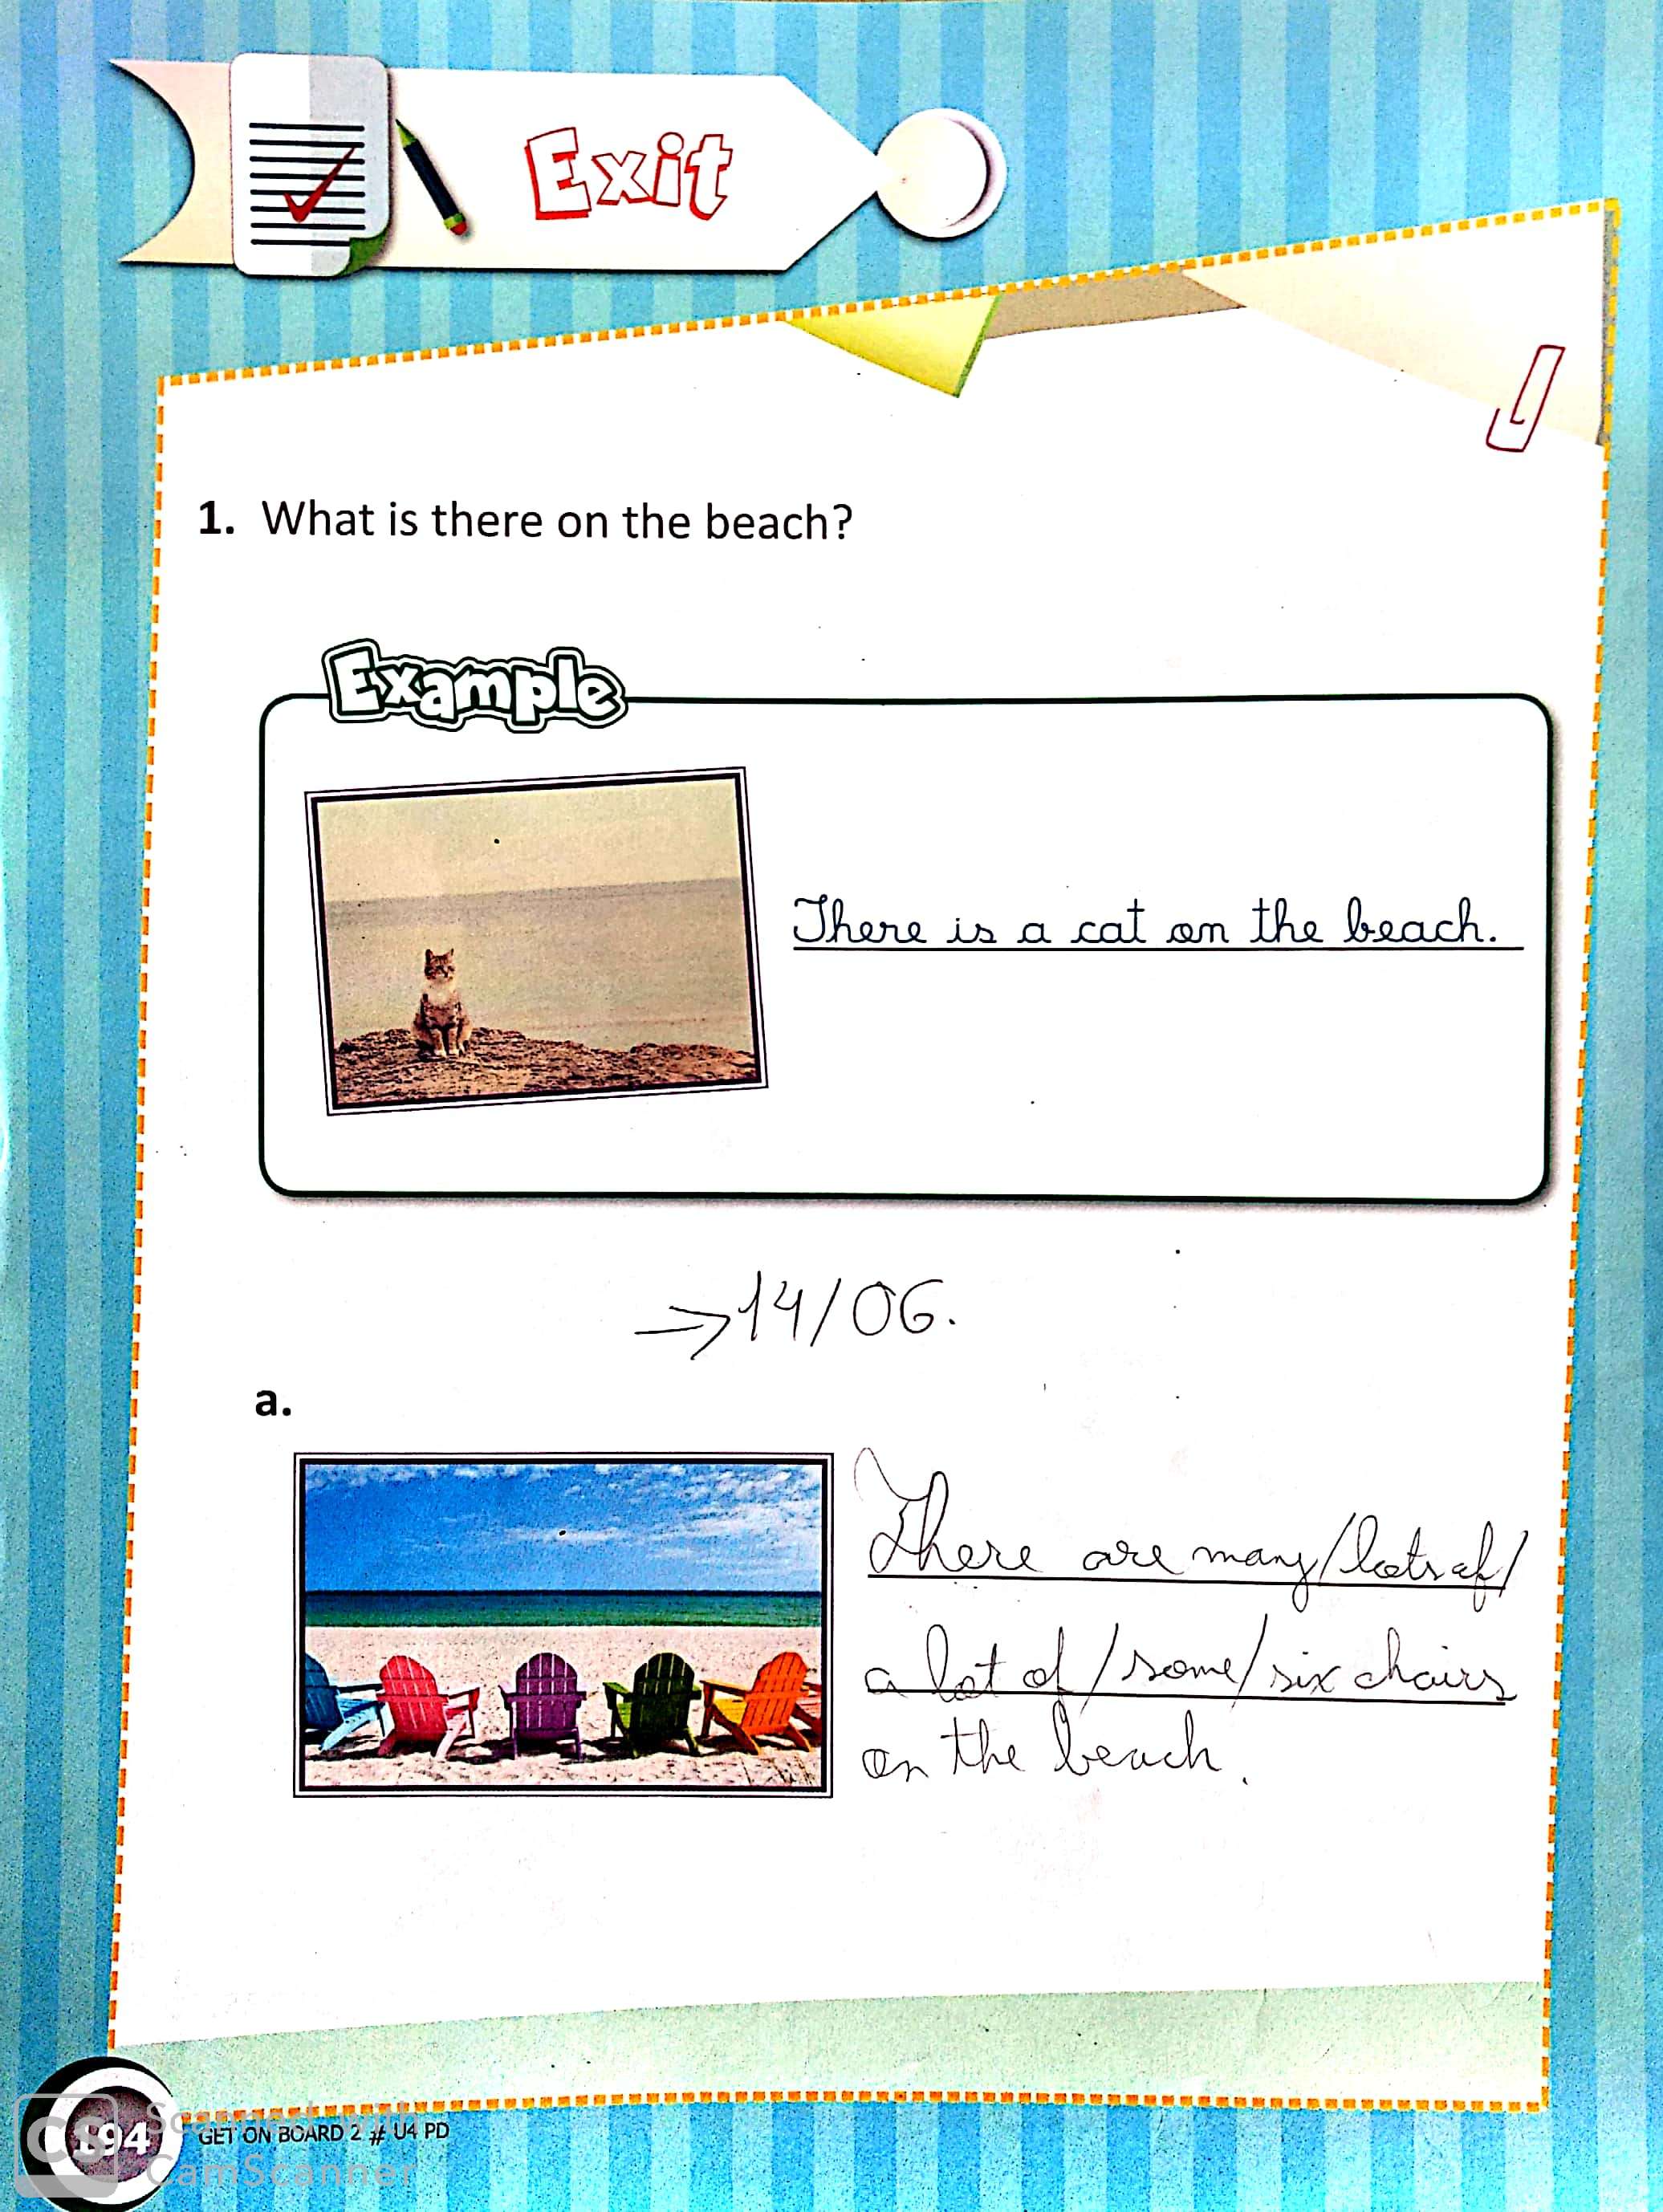 Exit
1. What is there on the beach?
Example
There is a cat on the beach.
→14/06.
a.
There are many/lots of/
a lot of/some/six chairs
on the beach.
194
GET ON BOARD 2 # U4 PD
CS
Scanned with
CamScanner